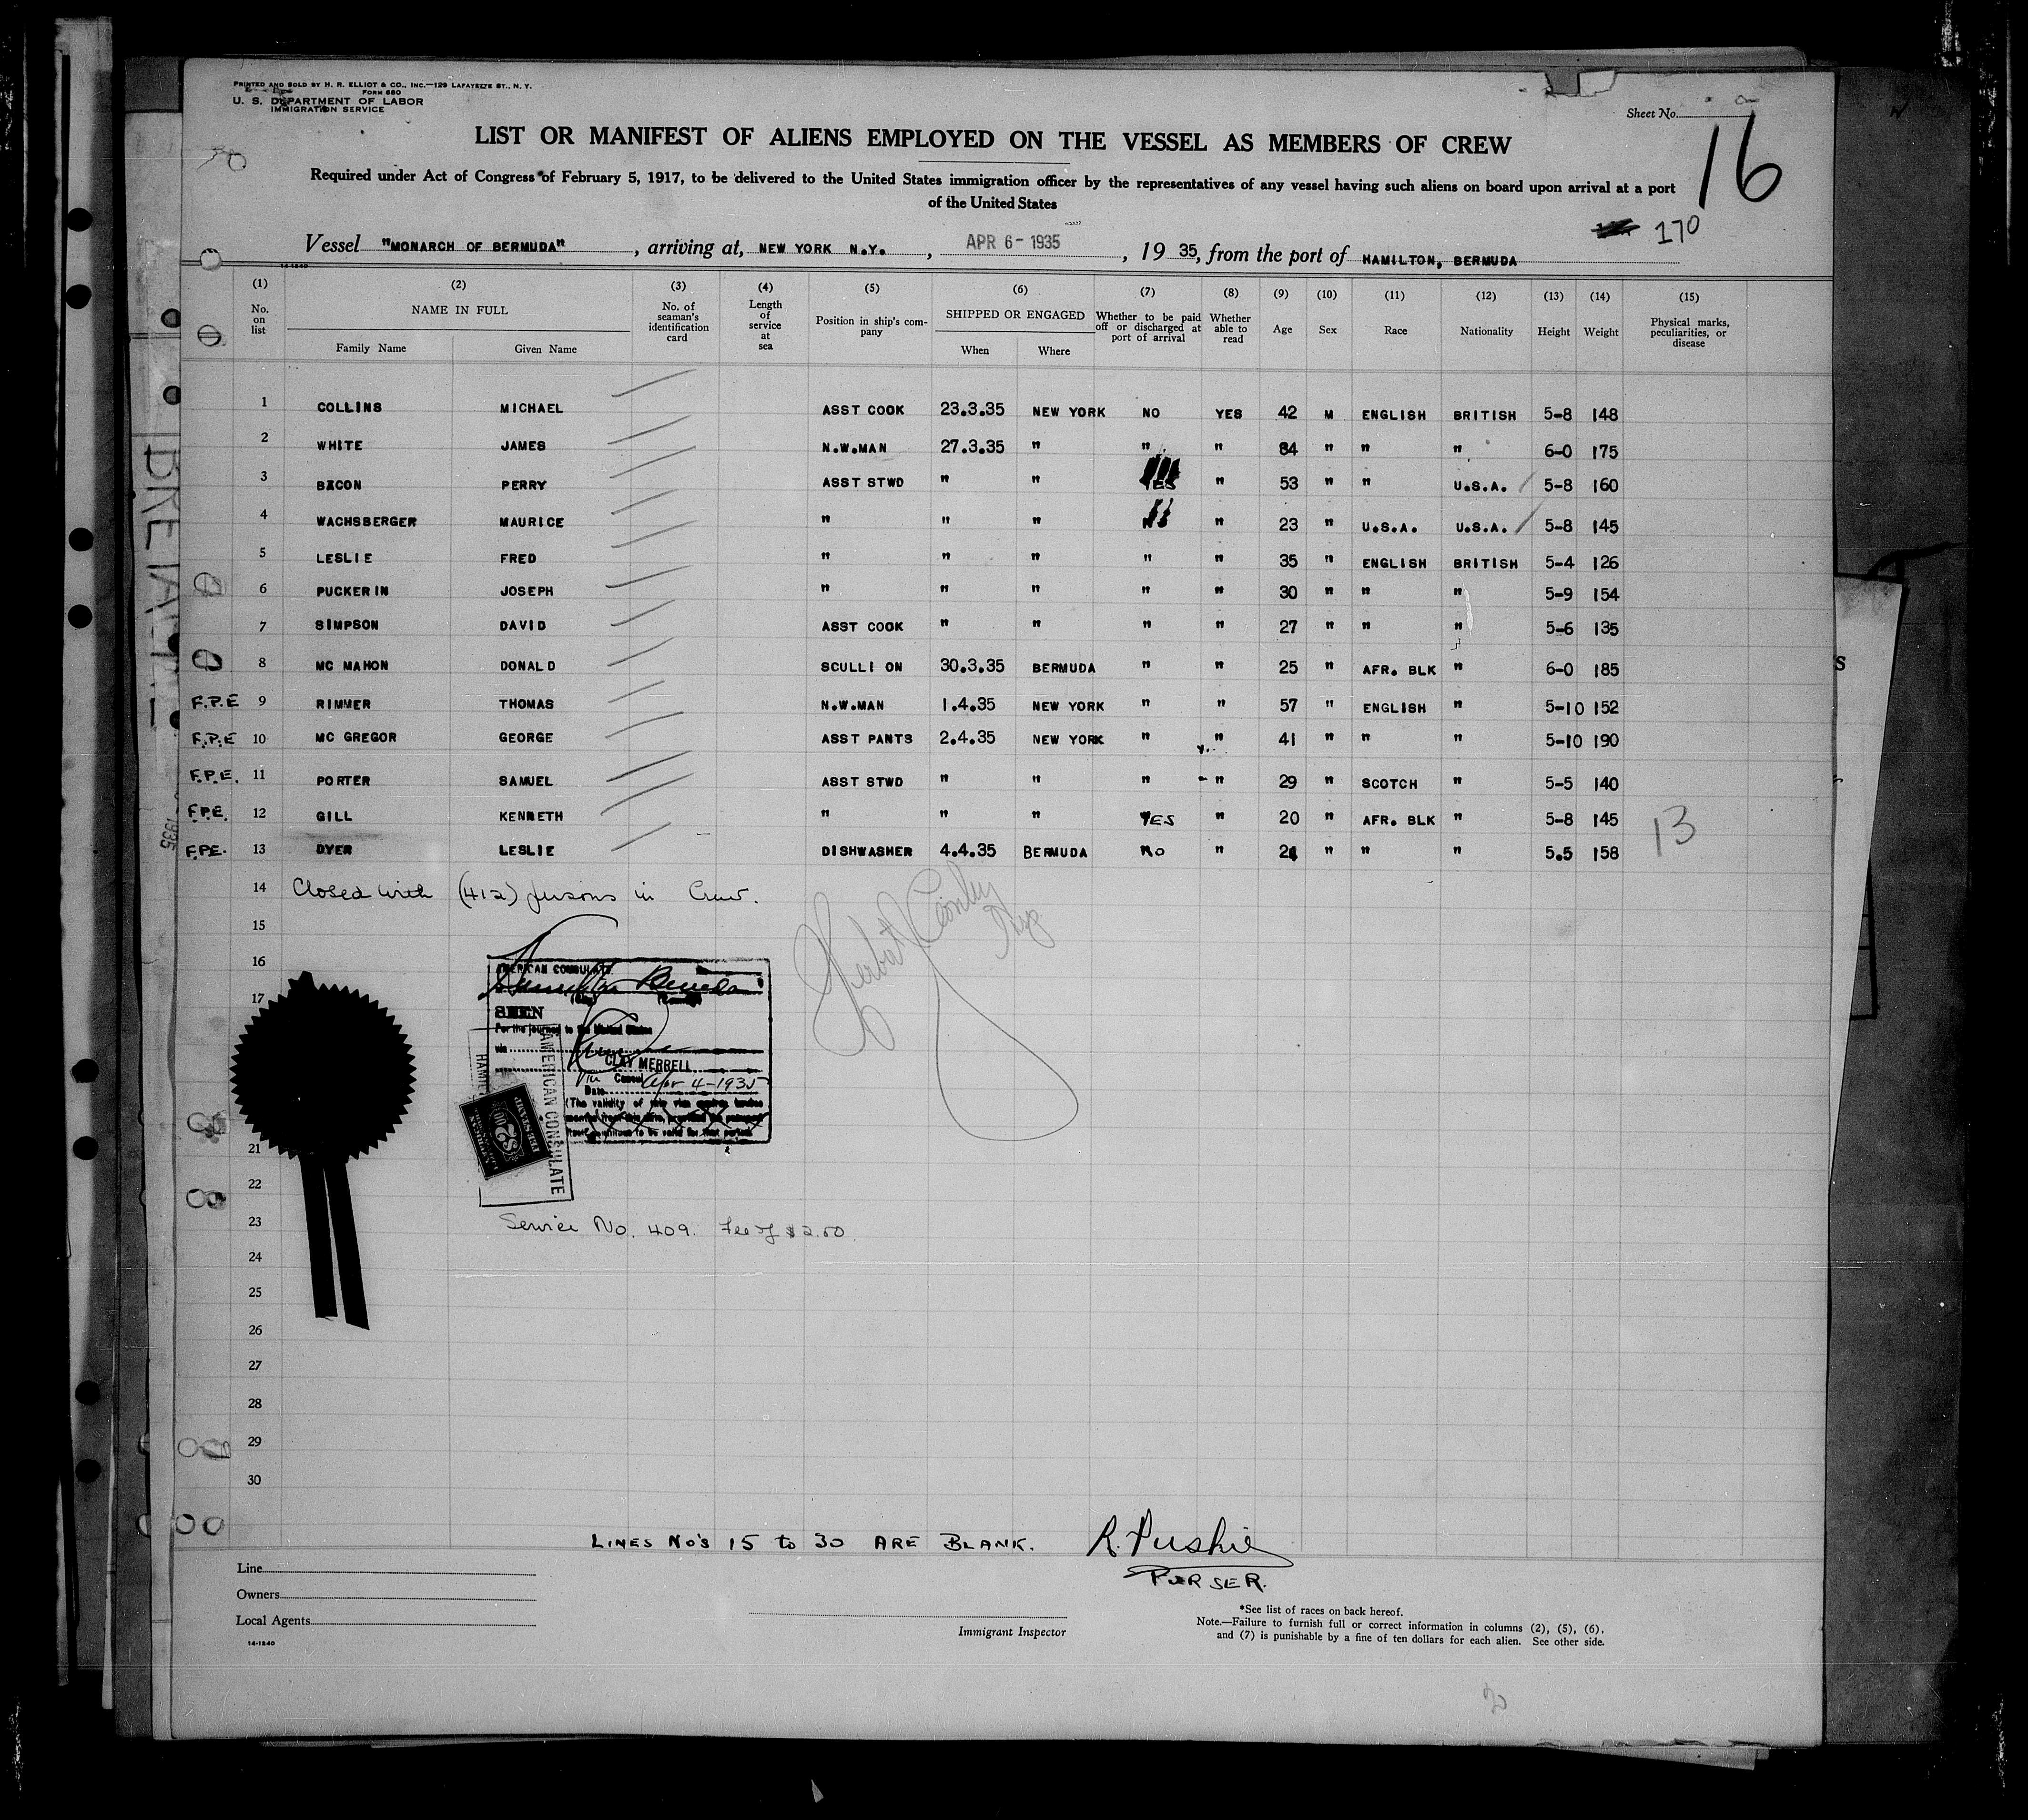 PRINTED AND SOLD BY H. R. ELLIOT & CO., INC.—129 LAFAYETTE ST., N. Y.
FORM 680
U. S. DEPARTMENT OF LABOR
IMMIGRATION SERVICE
Sheet No.
16
LIST OR MANIFEST OF ALIENS EMPLOYED ON THE VESSEL AS MEMBERS OF CREW
Required under Act of Congress of February 5, 1917, to be delivered to the United States immigration officer by the representatives of any vessel having such aliens on board upon arrival at a port
of the United States
170
Vessel "MONARCH OF BERMUDA", arriving at, NEW YORK N.Y., APR 6- 1935, 19 35, from the port of HAMILTON, BERMUDA
14-1240
(1) (2) (3) (4) (5) (6) (7) (8) (9) (10) (11) (12) (13) (14) (15)
No. on list NAME IN FULL Family Name Given Name No. of seaman's identification card Length of service at sea Position in ship's company SHIPPED OR ENGAGED When Where Whether to be paid off or discharged at port of arrival Whether able to read Age Sex Race Nationality Height Weight Physical marks, peculiarities, or disease
1 COLLINS MICHAEL ASST COOK 23.3.35 NEW YORK NO YES 42 M ENGLISH BRITISH 5-8 148
2 WHITE JAMES N.W.MAN 27.3.35 " " " 84 " " " 6-0 175
3 BACON PERRY ASST STWD " " YES " 53 " " U.S.A. 5-8 160
4 WACHSBERGER MAURICE " " " " 23 " U.S.A. U.S.A. 5-8 145
5 LESLIE FRED " " " " " 35 " ENGLISH BRITISH 5-4 126
6 PUCKERIN JOSEPH " " " " " 30 " " " 5-9 154
7 SIMPSON DAVID ASST COOK " " " " 27 " " " 5-6 135
8 MC MAHON DONALD SCULLION 30.3.35 BERMUDA " " 25 " AFR. BLK " 6-0 185
F.P.E 9 RIMMER THOMAS N.W.MAN 1.4.35 NEW YORK " " 57 " ENGLISH " 5-10 152
F.P.E 10 MC GREGOR GEORGE ASST PANTS 2.4.35 NEW YORK " " 41 " " " 5-10 190
F.P.E. 11 PORTER SAMUEL ASST STWD " " " " 29 " SCOTCH " 5-5 140
F.P.E. 12 GILL KENNETH " " " YES " 20 " AFR. BLK " 5-8 145
F.P.E. 13 DYER LESLIE DISHWASHER 4.4.35 BERMUDA NO " 21 " " " 5.5 158
13
14 Closed with (412) persons in Crew.
15
16
17
AMERICAN CONSULATE
Hamilton Bermuda
SEEN
For the journey to the United States
via
CLAY MERRELL
Vice Consul
Date Apr 4-1935
(The validity of this visa
AMERICAN CONSULATE
21
22
23 Service No. 409. Fee of $2.00
24
25
26
27
28
29
30
LINES NO'S 15 to 30 ARE BLANK. R. Pushie
PURSER.
Line
Owners
Local Agents
14-1240
Immigrant Inspector
*See list of races on back hereof.
Note.—Failure to furnish full or correct information in columns (2), (5), (6),
and (7) is punishable by a fine of ten dollars for each alien. See other side.